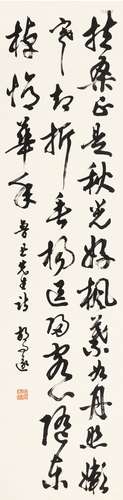 扶桑正是秋光好枫叶如丹照嫩
寒却折垂杨送归客心随东
棹忆华年
鲁迅先生诗